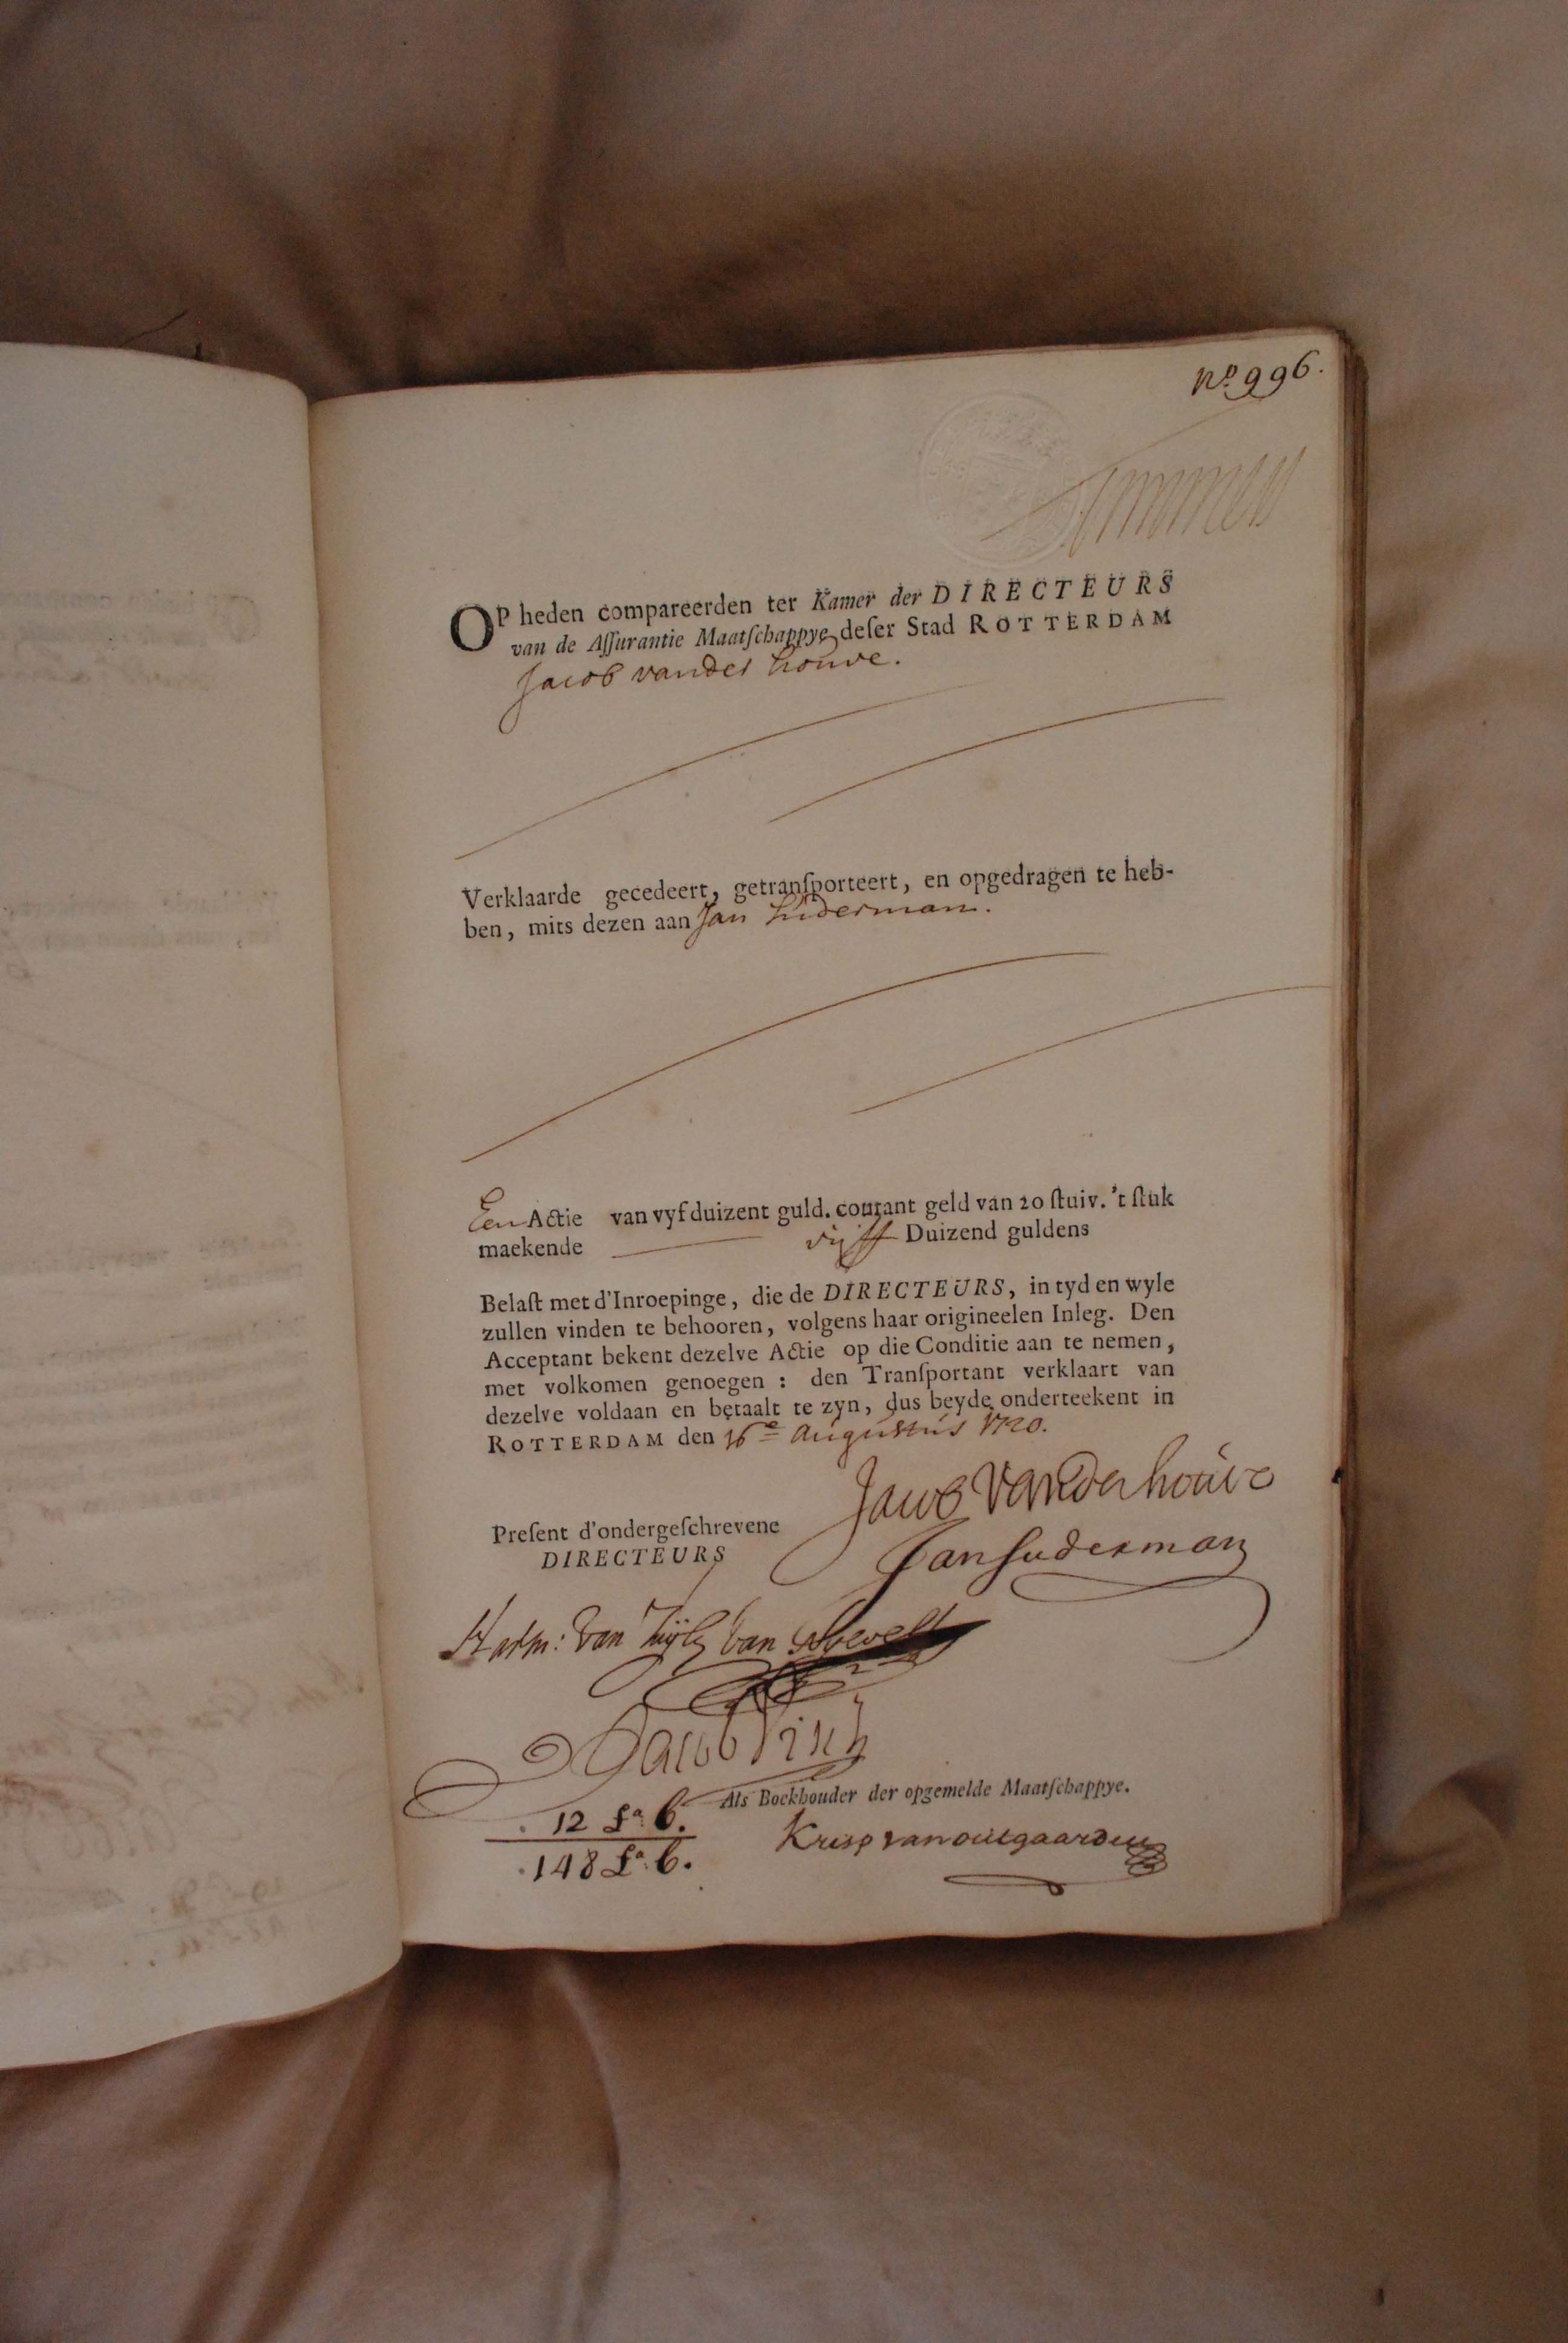 No. 996.
OP heden compareerden ter Kamer der DIRECTEURS
van de Aſſurantie Maatſchappye deſer Stad ROTTERDAM
Jacob vander houve.
Verklaarde gecedeert, getranſporteert, en opgedragen te heb-
ben, mits dezen aan Jan Suderman.
Een Actie van vyf duizent guld. courant geld van 20 ſtuiv. 't ſtuk
maekende vijff Duizend guldens
Belaſt met d'Inroepinge, die de DIRECTEURS, in tyd en wyle
zullen vinden te behooren, volgens haar origineelen Inleg. Den
Acceptant bekent dezelve Actie op die Conditie aan te nemen,
met volkomen genoegen : den Tranſportant verklaart van
dezelve voldaan en betaalt te zyn, dus beyde onderteekent in
ROTTERDAM den 16e Augustus 1720.
Jacob Vander houve
Preſent d'ondergeſchrevene
DIRECTEURS
Jan Suderman
van Zuÿlen van
Jacob
Als Boekhouder der opgemelde Maatſchappye.
12 fa. 6.
148 fa. 6.
Krisp van outgaarden